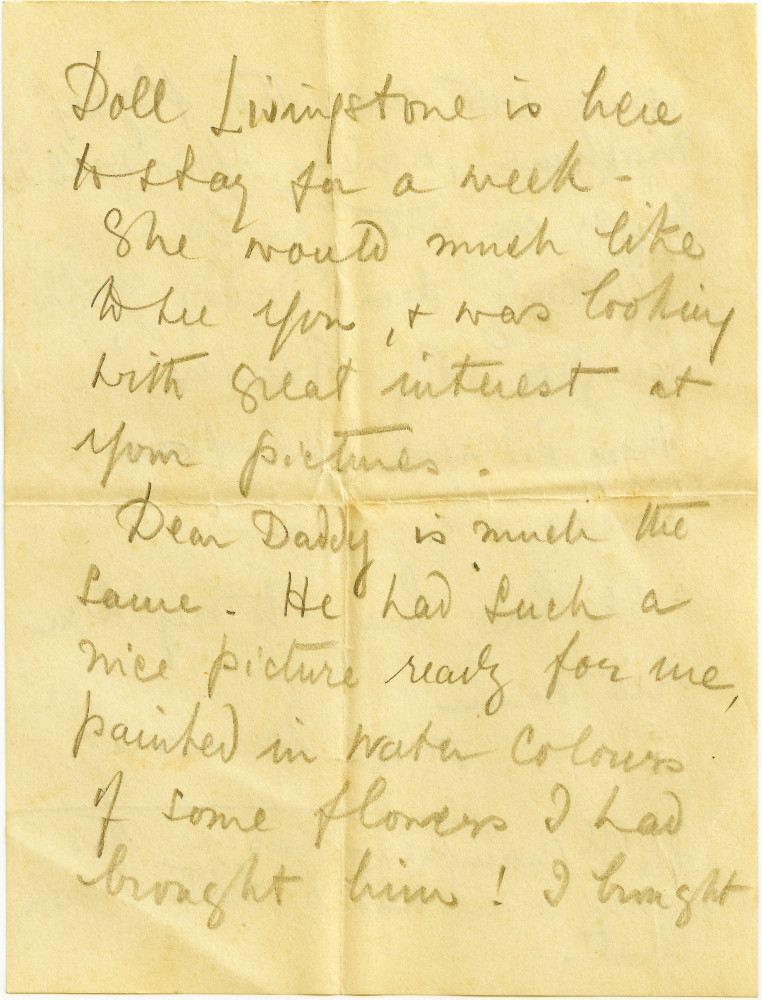 Doll Livingstone is here
to stay for a week -
She would much like
to see you, & was looking
with great interest at
your pictures.
Dear Daddy is much the
same. He had such a
nice picture ready for me,
painted in water colours
of some flowers I had
brought him! I brought